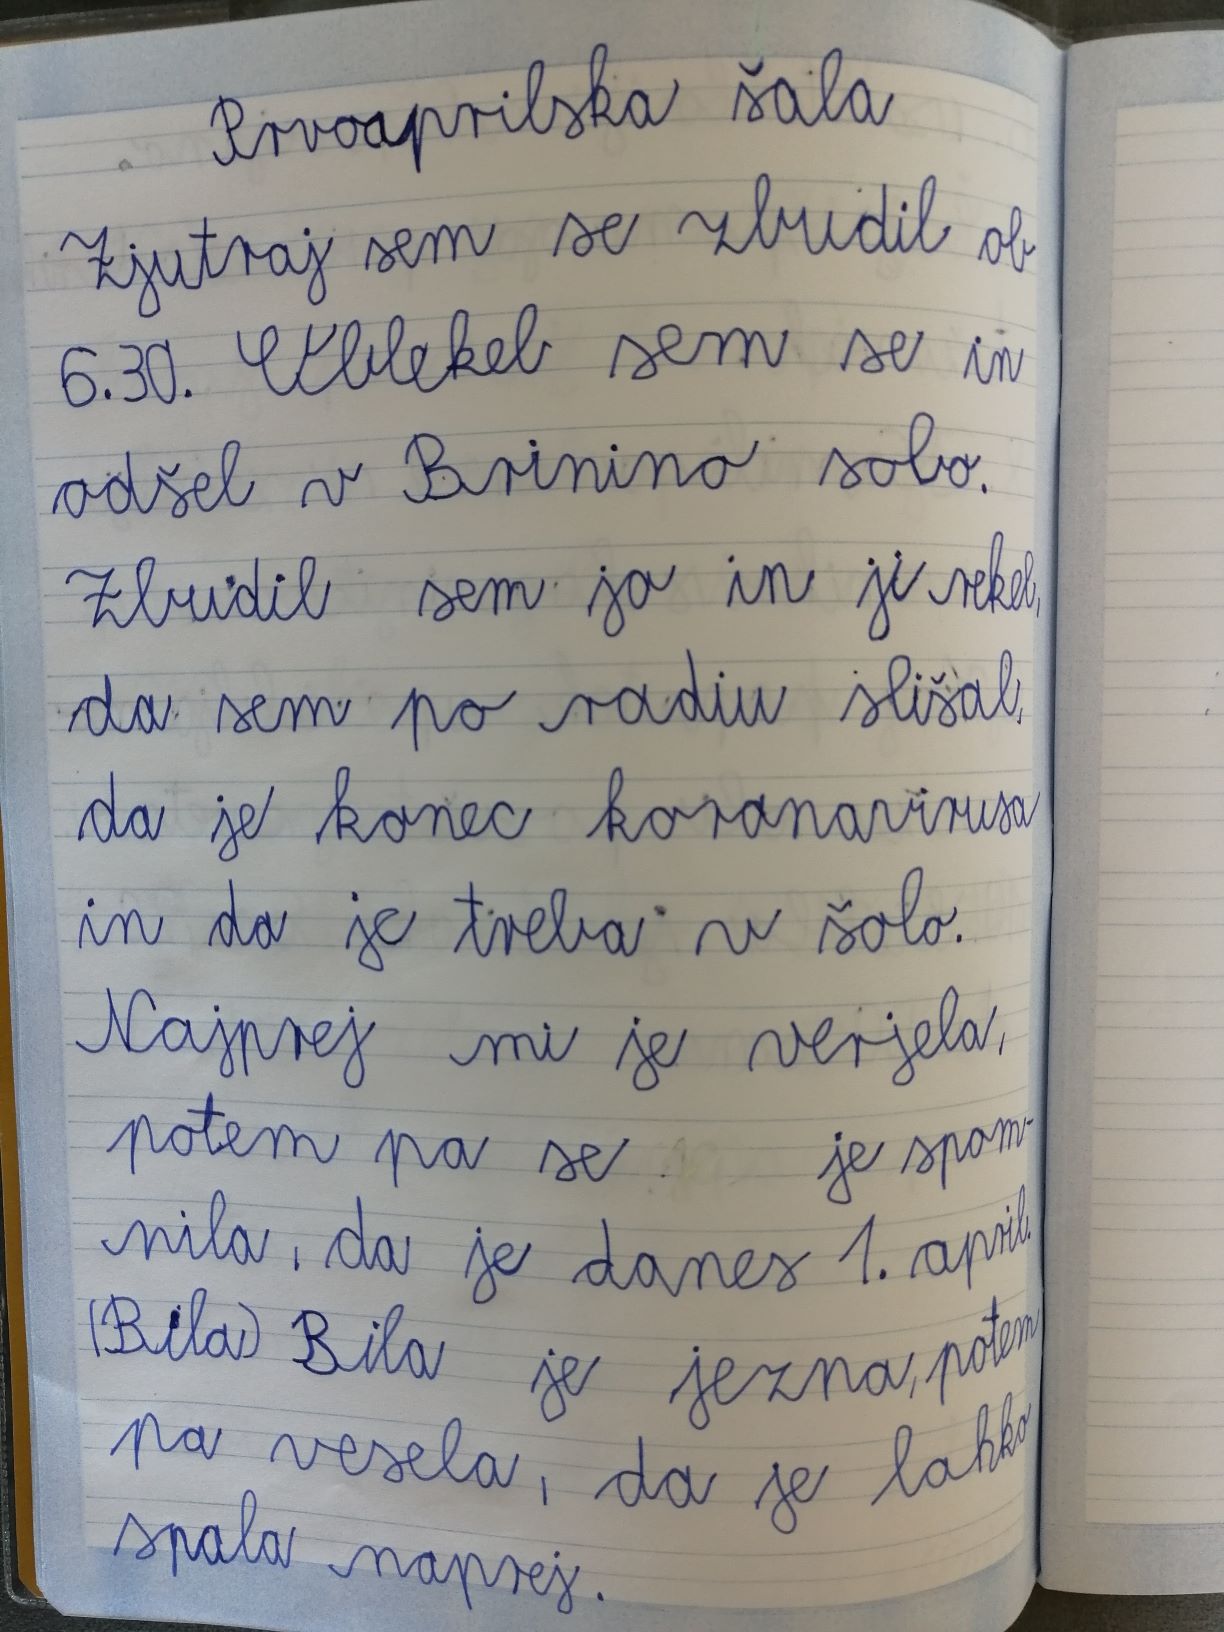 Prvoaprilska šala
Zjutraj sem se zbudil ob
6.30. Oblekel sem se in
odšel v Brinino sobo.
Zbudil sem jo in ji rekel,
da sem po radiu slišal,
da je konec koronavirusa
in da je treba v šolo.
Najprej mi je verjela,
potem pa se je spom-
nila, da je danes 1. april.
(Bila) Bila je jezna, potem
pa vesela, da je lahko
spala naprej.